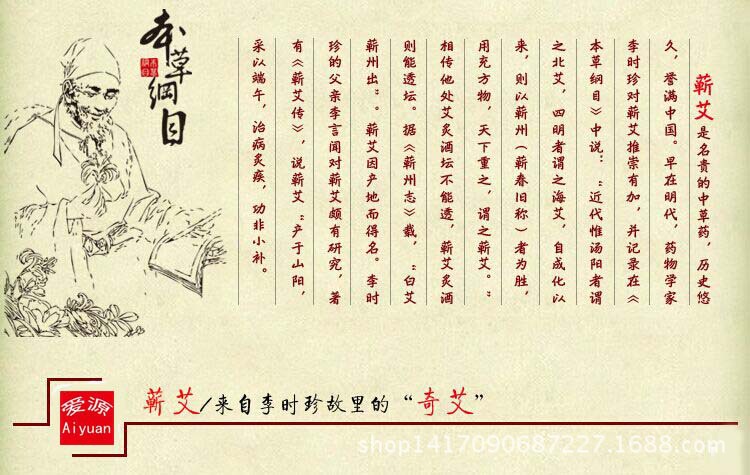 本草纲目
本草
纲目
蕲艾是名贵的中草药，历史悠
久，誉满中国。早在明代，药物学家
李时珍对蕲艾推崇有加，并记录在《
本草纲目》中说：“近代惟汤阳者谓
之北艾，四明者谓之海艾，自成化以
来，则以蕲州（蕲春旧称）者为胜，
用充方物，天下重之，谓之蕲艾。”
相传他处艾灸酒坛不能透，蕲艾灸酒
则能透坛。据《蕲州志》载，“白艾
蕲州出”。蕲艾因产地而得名。李时
珍的父亲李言闻对蕲艾颇有研究，著
有《蕲艾传》，说蕲艾“产于山阳，
采以端午，治病灸疾，功非小补。
爱源
Aiyuan
蕲艾/来自李时珍故里的“奇艾”
shop1417090687227.1688.com